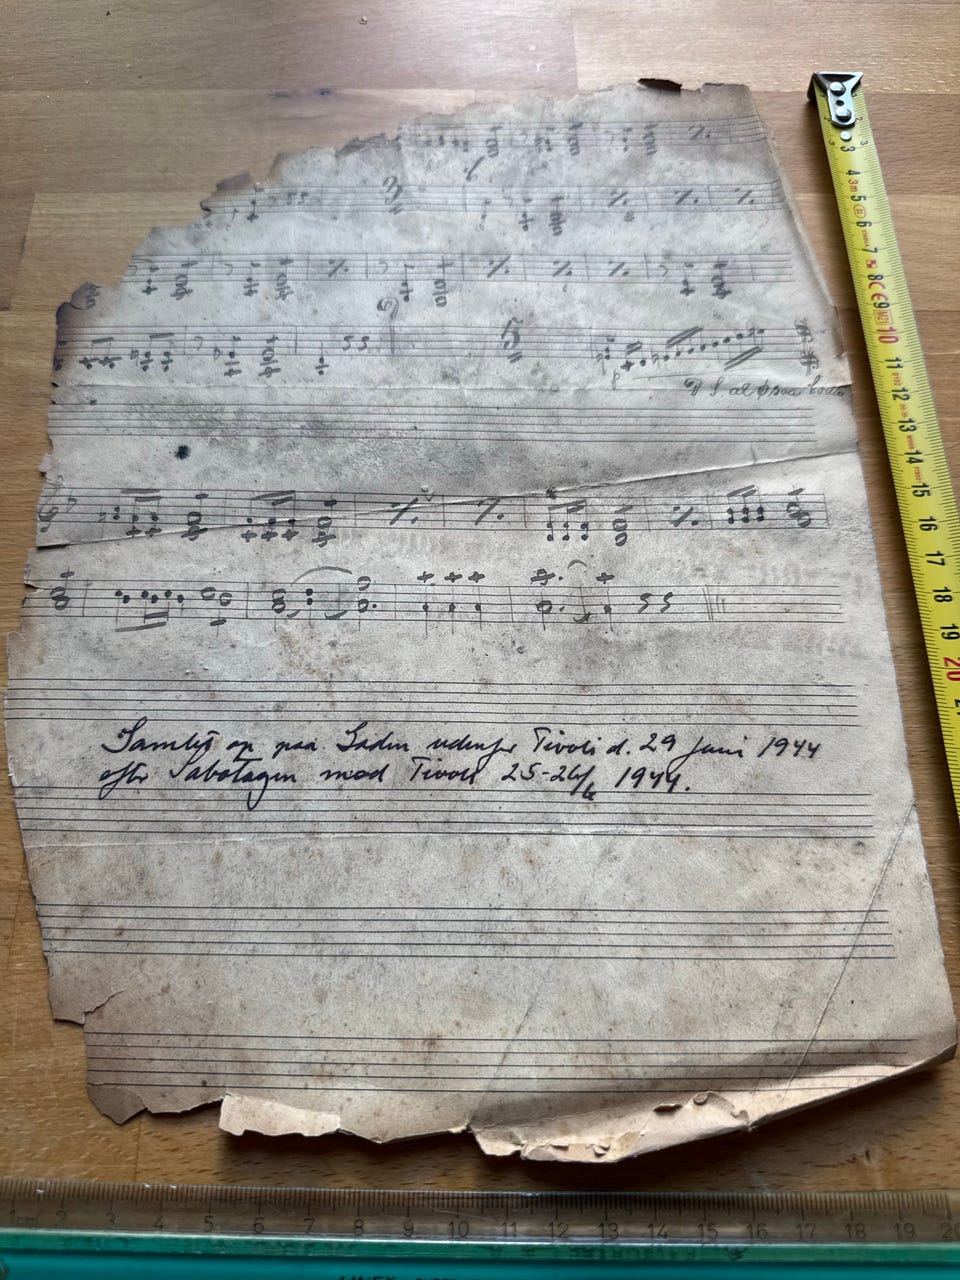 3
5
D.S. al
Samlet op paa Gaden udenfor Tivoli d. 29 Juni 1944
efter Sabotagen mod Tivoli 25-26/6 1944.
3m
3 4 5 6 7 8 9 10 11 12 13 14 15 16 17 18 19 20
1cm 2 3 4 5 6 7 8 9 10 11 12 13 14 15 16 17 18 19 20
LINEX